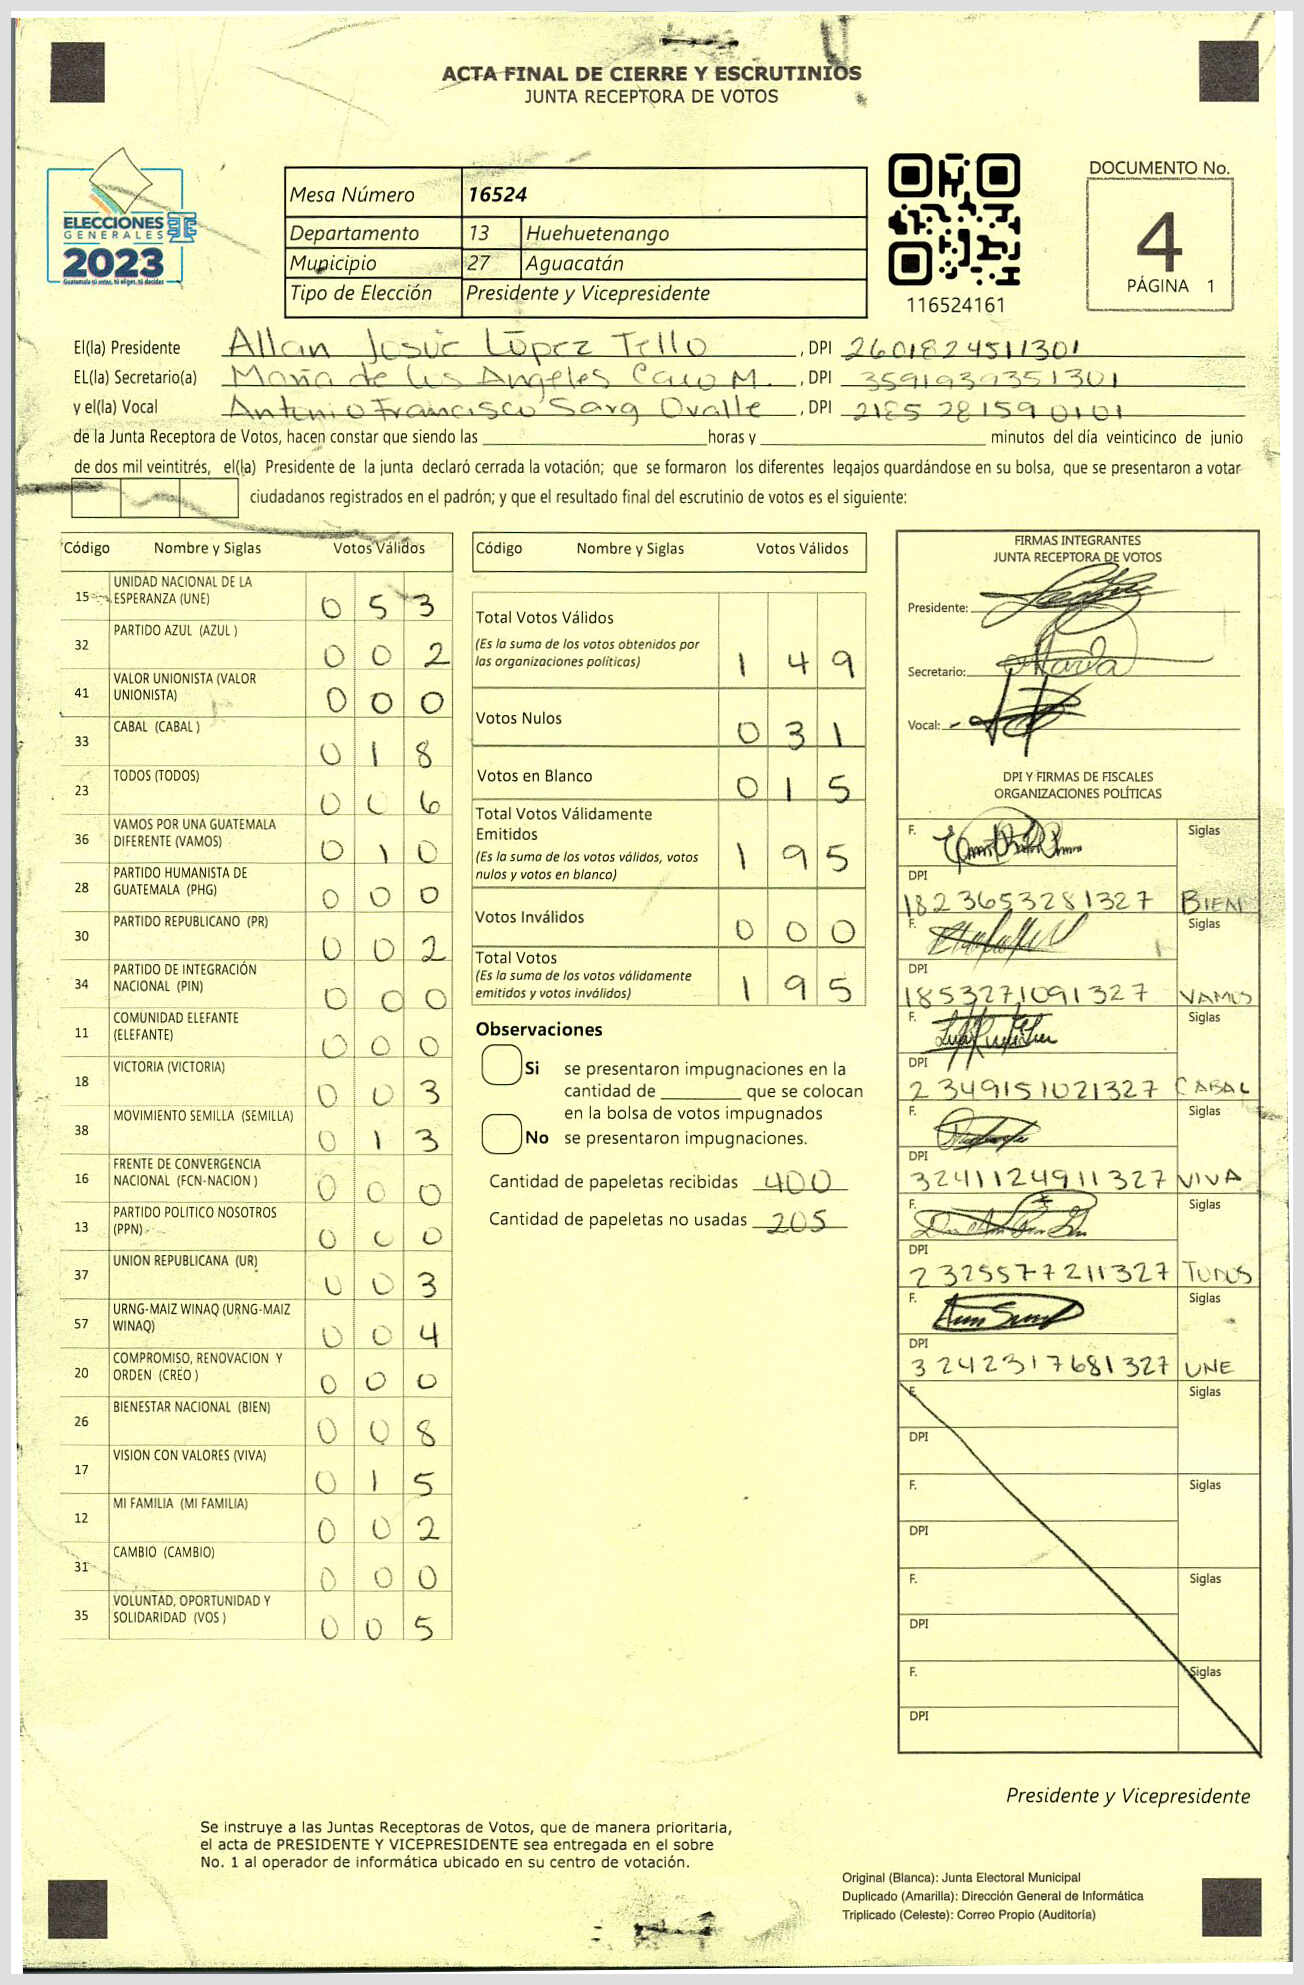 ACTA FINAL DE CIERRE Y ESCRUTINIOS
JUNTA RECEPTORA DE VOTOS
ELECCIONES
GENERALES
2023
Guatemala tú votas, tú eliges, tú decides
Mesa Número 16524
Departamento 13 Huehuetenango
Municipio 27 Aguacatán
Tipo de Elección Presidente y Vicepresidente
116524161
DOCUMENTO No.
4
PÁGINA 1
El(la) Presidente Allan Josue López Tello , DPI 2601824511301
EL(la) Secretario(a) Maria de los Angeles Cano M. , DPI 3591939351301
y el(la) Vocal Antonio Francisco Sarg Ovalle , DPI 2185 281590101
de la Junta Receptora de Votos, hacen constar que siendo las ____ horas y ____ minutos del día veinticinco de junio
de dos mil veintitrés, el(la) Presidente de la junta declaró cerrada la votación; que se formaron los diferentes legajos guardándose en su bolsa, que se presentaron a votar
ciudadanos registrados en el padrón; y que el resultado final del escrutinio de votos es el siguiente:
Código Nombre y Siglas Votos Válidos
15 UNIDAD NACIONAL DE LA ESPERANZA (UNE) 0 5 3
32 PARTIDO AZUL (AZUL ) 0 0 2
41 VALOR UNIONISTA (VALOR UNIONISTA) 0 0 0
33 CABAL (CABAL ) 0 1 8
23 TODOS (TODOS) 0 0 6
36 VAMOS POR UNA GUATEMALA DIFERENTE (VAMOS) 0 1 0
28 PARTIDO HUMANISTA DE GUATEMALA (PHG) 0 0 0
30 PARTIDO REPUBLICANO (PR) 0 0 2
34 PARTIDO DE INTEGRACIÓN NACIONAL (PIN) 0 0 0
11 COMUNIDAD ELEFANTE (ELEFANTE) 0 0 0
18 VICTORIA (VICTORIA) 0 0 3
38 MOVIMIENTO SEMILLA (SEMILLA) 0 1 3
16 FRENTE DE CONVERGENCIA NACIONAL (FCN-NACION ) 0 0 0
13 PARTIDO POLITICO NOSOTROS (PPN) 0 0 0
37 UNION REPUBLICANA (UR) 0 0 3
57 URNG-MAIZ WINAQ (URNG-MAIZ WINAQ) 0 0 4
20 COMPROMISO, RENOVACION Y ORDEN (CREO ) 0 0 0
26 BIENESTAR NACIONAL (BIEN) 0 0 8
17 VISION CON VALORES (VIVA) 0 1 5
12 MI FAMILIA (MI FAMILIA) 0 0 2
31 CAMBIO (CAMBIO) 0 0 0
35 VOLUNTAD, OPORTUNIDAD Y SOLIDARIDAD (VOS ) 0 0 5
Código Nombre y Siglas Votos Válidos
Total Votos Válidos
(Es la suma de los votos obtenidos por
las organizaciones políticas) 1 4 9
Votos Nulos 0 3 1
Votos en Blanco 0 1 5
Total Votos Válidamente
Emitidos
(Es la suma de los votos válidos, votos
nulos y votos en blanco) 1 9 5
Votos Inválidos 0 0 0
Total Votos
(Es la suma de los votos válidamente
emitidos y votos inválidos) 1 9 5
Observaciones
Si se presentaron impugnaciones en la
cantidad de ____ que se colocan
en la bolsa de votos impugnados
No se presentaron impugnaciones.
Cantidad de papeletas recibidas 400
Cantidad de papeletas no usadas 205
FIRMAS INTEGRANTES
JUNTA RECEPTORA DE VOTOS
Presidente:
Secretario: Maria
Vocal:
DPI Y FIRMAS DE FISCALES
ORGANIZACIONES POLÍTICAS
F. Siglas
DPI
1823653281327 BIEN
F. Siglas
DPI
1853271091327 VAMOS
F. Siglas
DPI
2349151021327 CABAL
F. Siglas
DPI
3241124911327 VIVA
F. Siglas
DPI
2325577211327 TODOS
F. Siglas
DPI
3242317681327 UNE
F. Siglas
DPI
F. Siglas
DPI
F. Siglas
DPI
F. Siglas
DPI
Presidente y Vicepresidente
Se instruye a las Juntas Receptoras de Votos, que de manera prioritaria,
el acta de PRESIDENTE Y VICEPRESIDENTE sea entregada en el sobre
No. 1 al operador de informática ubicado en su centro de votación.
Original (Blanca): Junta Electoral Municipal
Duplicado (Amarilla): Dirección General de Informática
Triplicado (Celeste): Correo Propio (Auditoría)